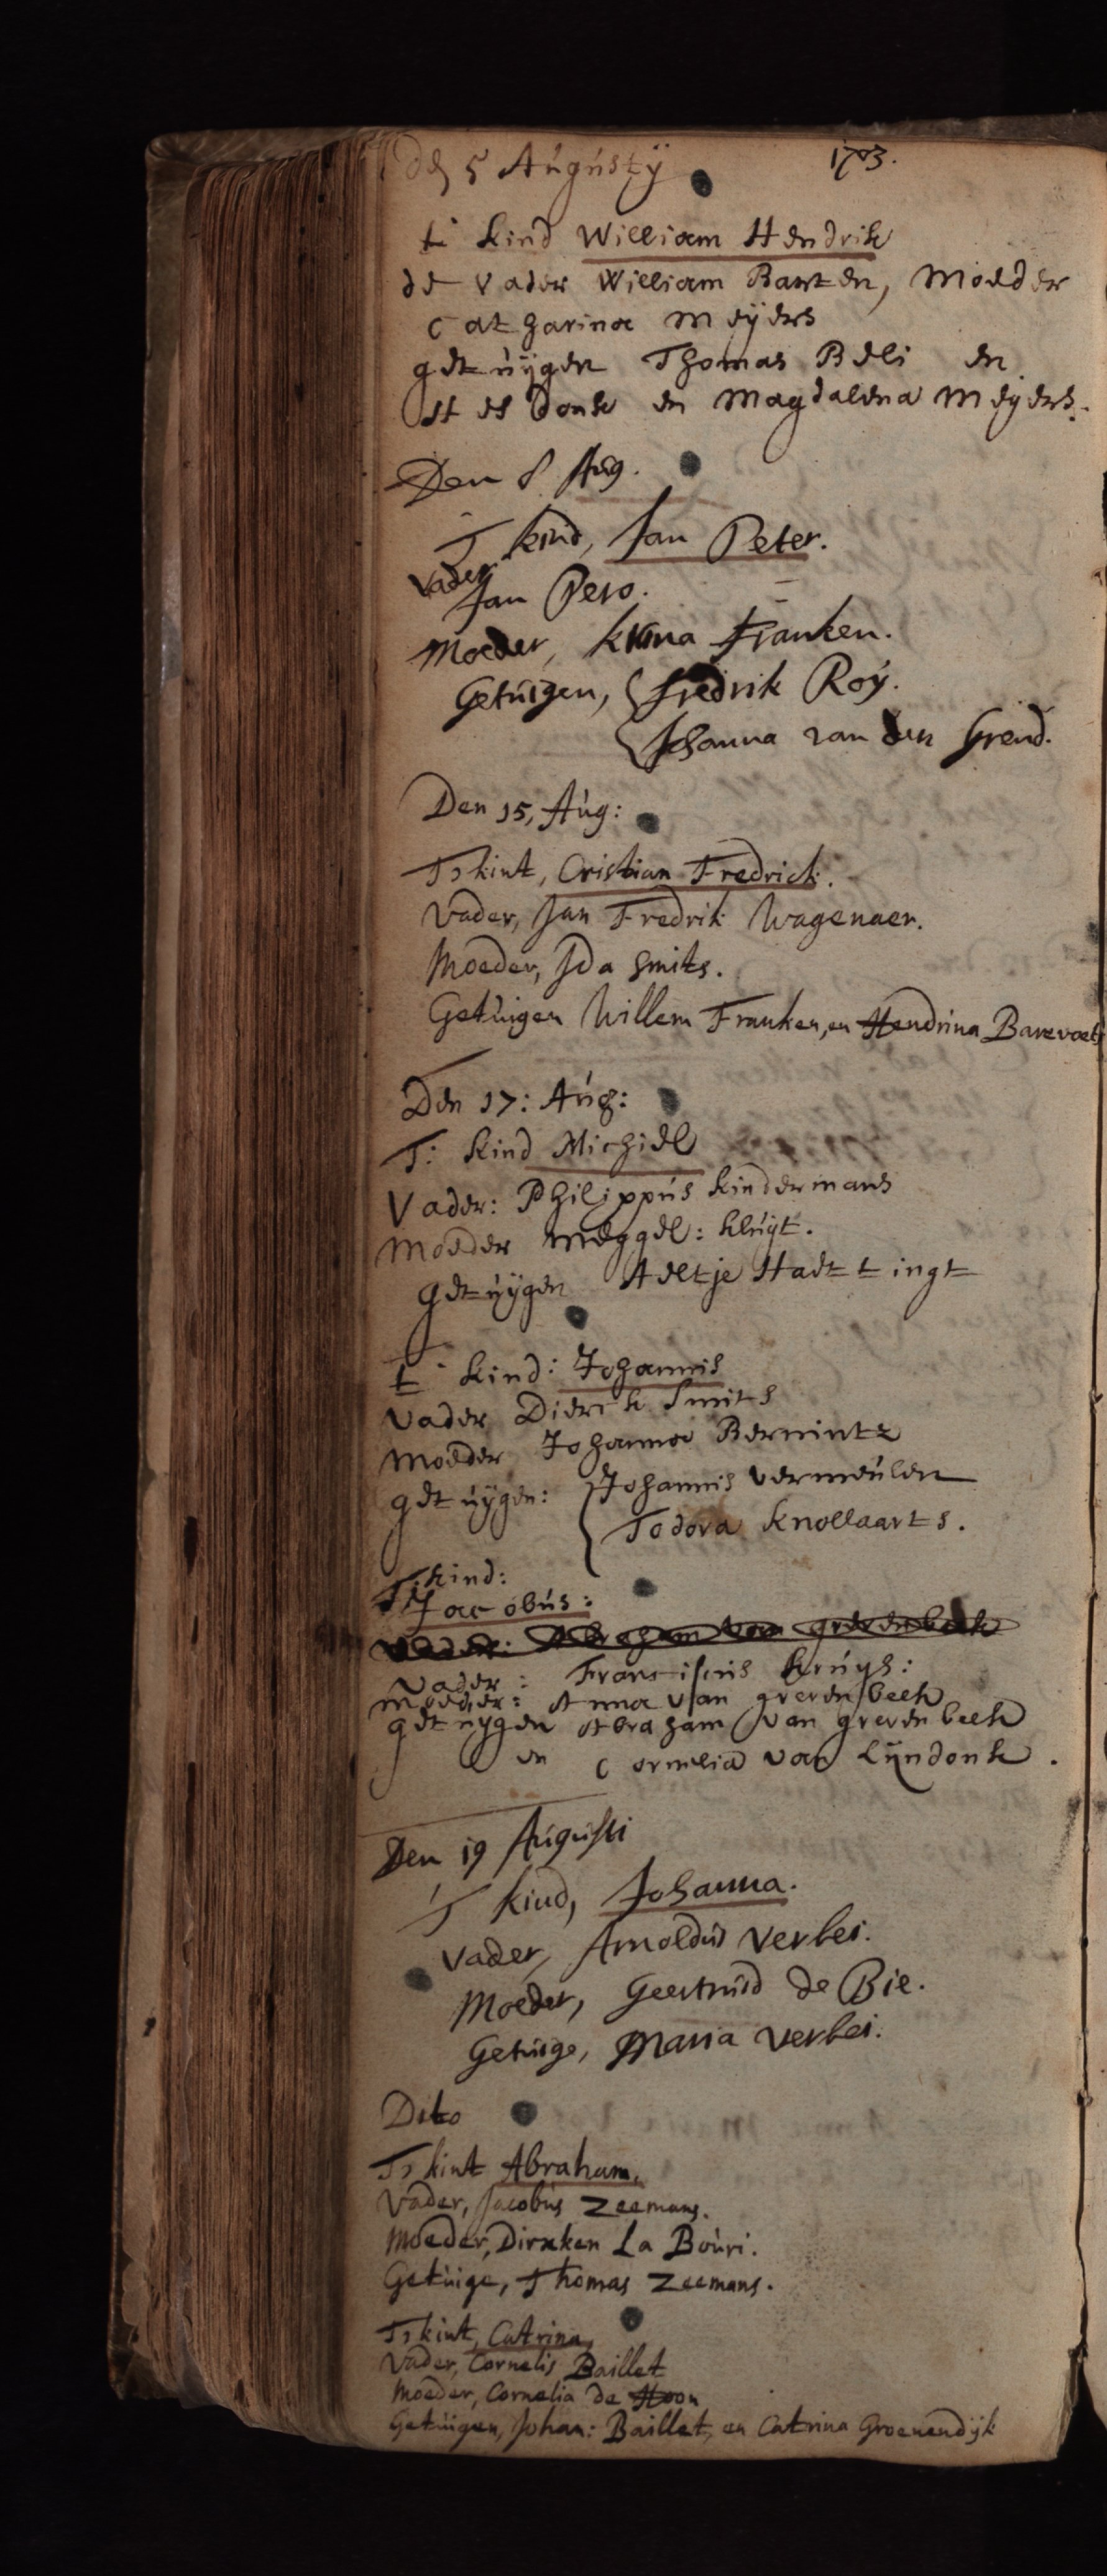 den 5 Augústÿ 1703.
t kind William Hendrik
de vader William Barten, Moeder
Catharina Meÿers
getúÿgen Thomas Beli en
Donk en Magdalena Meÿers.
Den 8 Aúg.
T kind, Jan Peter.
Vader
Jan Pero.
Moeder, Franken.
Getúigen, Fredrik Roÿ.
Johanna van den
Den 15, Aúg:
Ts kint, Cristian Fredrick.
Vader, Jan Fredrik Wagenaer.
Moeder, Ida Smits.
Getúigen Willem Franken, en Hendrina Barevoets
Den 17: Aúg:
T: kind Michiel
Vader: Philippús kindermans
Moeder Meggel: klúÿt.
getúÿgen Aeltje
t kind: Johannis
Vader Dierck Smits
Moeder Johanna Bernintz
getúÿgen: Johannis Vermeúlen
Todora Knollaarts.
T kind:
Jacobús:
Vader: Abraham van grevenbeek
Vader: Franciscús krúÿs:
moeder: Anna van grevenbeek
getúÿgen Abraham van grevenbeek
en Cornelia van Lÿndonk.
Den 19 Augústi
'T kind, Johanna.
Vader, Arnoldús Verbei.
Moeder, Geertrúid de Bie.
Getúige, Maria Verbei.
Dito
Ts kint Abraham.
Vader, Jacobús Zeemans.
Moeder, Dirxken La Boúri.
Getúige, Thomas Zeemans.
Ts kint, Catrina,
Vader, Cornelis Baillet
Moeder, Cornelia de Hoon
Getúigen, Johan: Baillet, en Catrina Groenendÿk